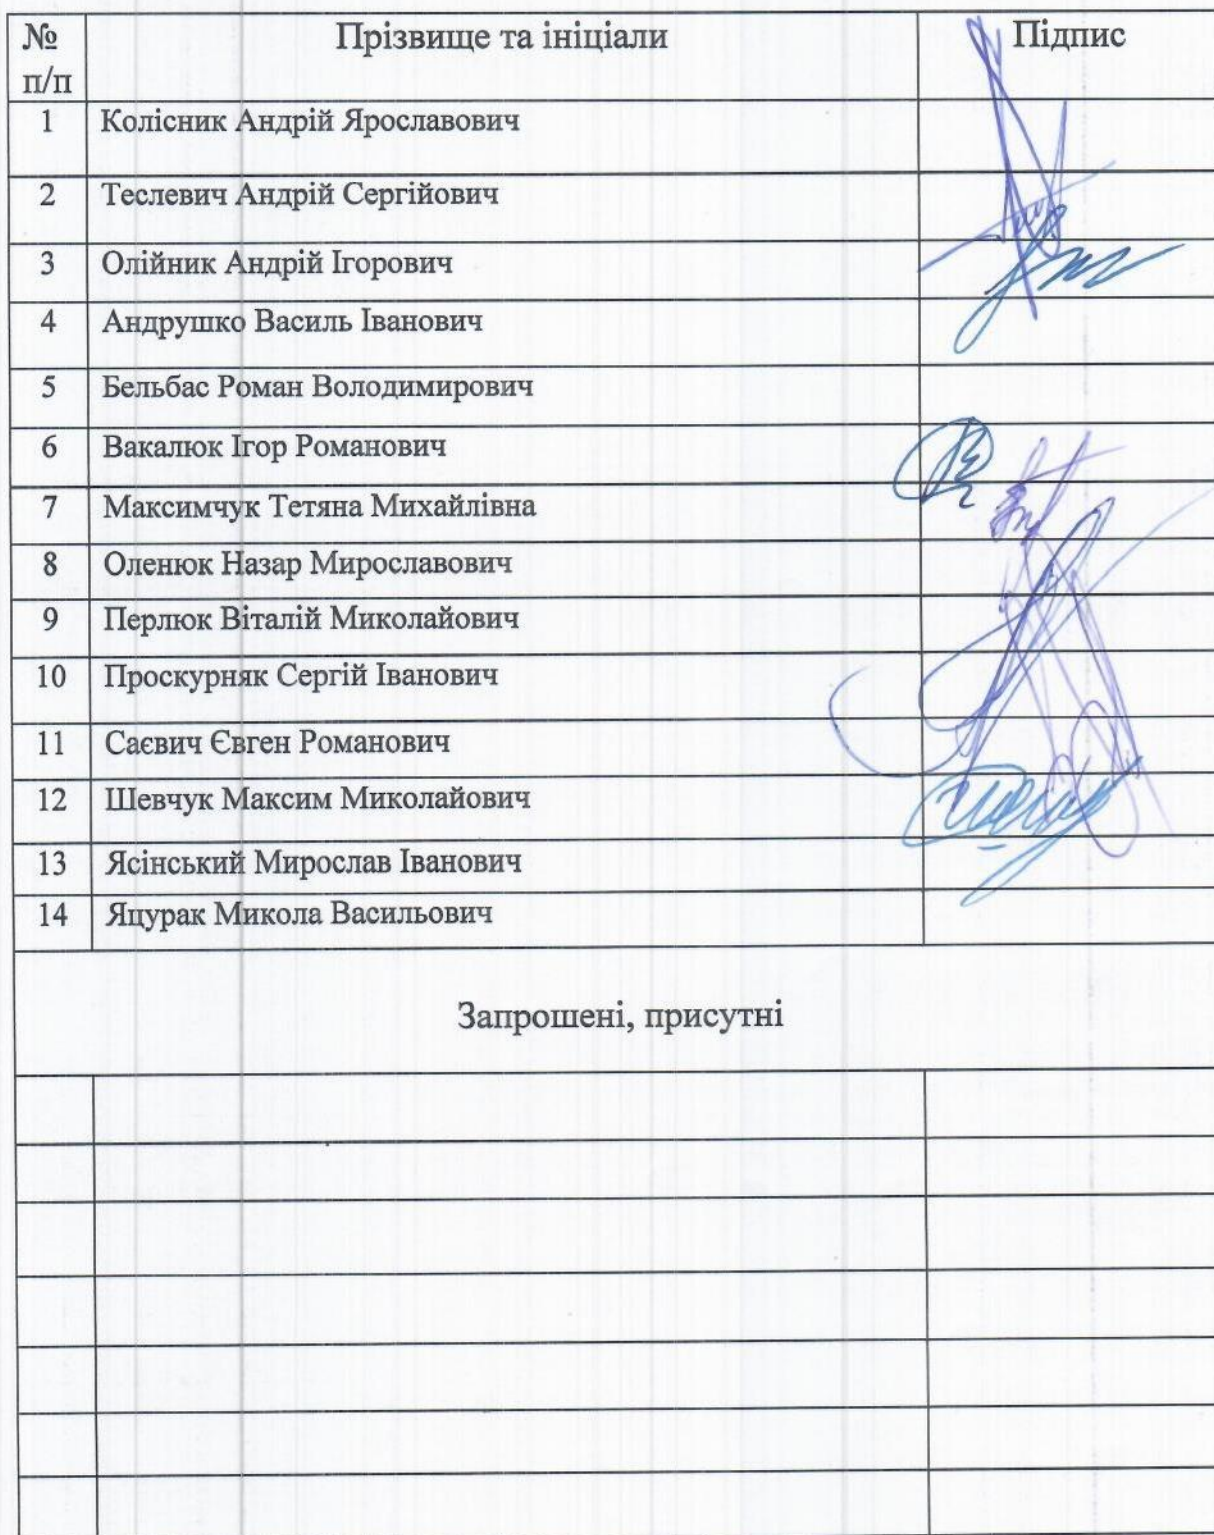 № п/п Прізвище та ініціали Підпис
1 Колісник Андрій Ярославович
2 Теслевич Андрій Сергійович
3 Олійник Андрій Ігорович
4 Андрушко Василь Іванович
5 Бельбас Роман Володимирович
6 Вакалюк Ігор Романович
7 Максимчук Тетяна Михайлівна
8 Оленюк Назар Мирославович
9 Перлюк Віталій Миколайович
10 Проскурняк Сергій Іванович
11 Саєвич Євген Романович
12 Шевчук Максим Миколайович
13 Ясінський Мирослав Іванович
14 Яцурак Микола Васильович
Запрошені, присутні